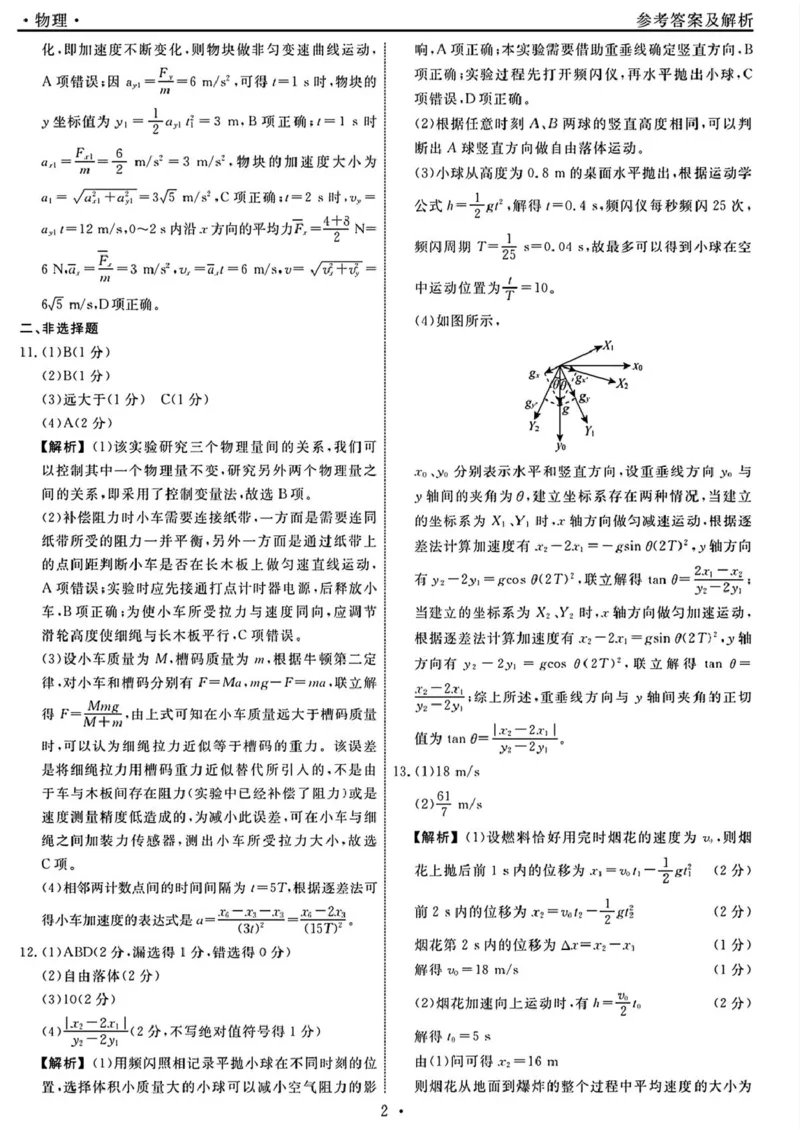 ·物理·
参考答案及解析
化,即加速度不断变化,则物块做非匀变速曲线运动,
A项错误;因 a_{y1}=\frac{F_y}{m}=6 m/s²,可得 t=1 s时,物块的
y坐标值为 y₁=\frac{1}{2}a_{y1}t₁²=3 m,B项正确;t=1 s时
a_{x1}=\frac{F_{x1}}{m}=\frac{6}{2} m/s²=3 m/s²,物块的加速度大小为
a₁=\sqrt{a_{x1}²+a_{y1}²}=3√5 m/s²,C项正确;t=2 s时,v_y=
a_{y1}t=12 m/s,0~2 s内沿x方向的平均力\overline{F}_x=\frac{4+8}{2} N=
6 N,\overline{a}_x=\frac{\overline{F}_x}{m}=3 m/s²,v_x=\overline{a}_xt=6 m/s,v=\sqrt{v_x²+v_y²}=
6√5 m/s,D项正确。
二、非选择题
11.(1)B(1分)
(2)B(1分)
(3)远大于(1分) C(1分)
(4)A(2分)
【解析】(1)该实验研究三个物理量间的关系,我们可
以控制其中一个物理量不变,研究另外两个物理量之
间的关系,即采用了控制变量法,故选B项。
(2)补偿阻力时小车需要连接纸带,一方面是需要连同
纸带所受的阻力一并平衡,另外一方面是通过纸带上
的点间距判断小车是否在长木板上做匀速直线运动,
A项错误;实验时应先接通打点计时器电源,后释放小
车,B项正确;为使小车所受拉力与速度同向,应调节
滑轮高度使细绳与长木板平行,C项错误。
(3)设小车质量为M,槽码质量为m,根据牛顿第二定
律,对小车和槽码分别有F=Ma,mg-F=ma,联立解
得F=\frac{Mmg}{M+m},由上式可知在小车质量远大于槽码质量
时,可以认为细绳拉力近似等于槽码的重力。该误差
是将细绳拉力用槽码重力近似替代所引入的,不是由
于车与木板间存在阻力(实验中已经补偿了阻力)或是
速度测量精度低造成的,为减小此误差,可在小车与细
绳之间加装力传感器,测出小车所受拉力大小,故选
C项。
(4)相邻两计数点间的时间间隔为t=5T,根据逐差法可
得小车加速度的表达式是a=\frac{x₆-x₃-x₃}{(3t)²}=\frac{x₆-2x₃}{(15T)²}。
12.(1)ABD(2分,漏选得1分,错选得0分)
(2)自由落体(2分)
(3)10(2分)
(4)\frac{|x₂-2x₁|}{y₂-2y₁}(2分,不写绝对值符号得1分)
【解析】(1)用频闪照相记录平抛小球在不同时刻的位
置,选择体积小质量大的小球可以减小空气阻力的影
响,A项正确;本实验需要借助重垂线确定竖直方向,B
项正确;实验过程先打开频闪仪,再水平抛出小球,C
项错误,D项正确。
(2)根据任意时刻A、B两球的竖直高度相同,可以判
断出A球竖直方向做自由落体运动。
(3)小球从高度为0.8 m的桌面水平抛出,根据运动学
公式h=\frac{1}{2}gt²,解得t=0.4 s,频闪仪每秒频闪25次,
频闪周期T=\frac{1}{25} s=0.04 s,故最多可以得到小球在空
中运动位置为\frac{t}{T}=10。
(4)如图所示,
X₁
x₀
X₂
g_x
g_{x'}
θθ
g_{y'}
g_y
g
Y₂
Y₁
y₀
x₀、y₀分别表示水平和竖直方向,设重垂线方向y₀与
y轴间的夹角为θ,建立坐标系存在两种情况,当建立
的坐标系为X₁、Y₁时,x轴方向做匀减速运动,根据逐
差法计算加速度有x₂-2x₁=-gsin θ(2T)²,y轴方向
有y₂-2y₁=gcos θ(2T)²,联立解得tan θ=\frac{2x₁-x₂}{y₂-2y₁};
当建立的坐标系为X₂、Y₂时,x轴方向做匀加速运动,
根据逐差法计算加速度有x₂-2x₁=gsin θ(2T)²,y轴
方向有y₂-2y₁=gcos θ(2T)²,联立解得tan θ=
\frac{x₂-2x₁}{y₂-2y₁};综上所述,重垂线方向与y轴间夹角的正切
值为tan θ=\frac{|x₂-2x₁|}{y₂-2y₁}。
13.(1)18 m/s
(2)\frac{61}{7} m/s
【解析】(1)设燃料恰好用完时烟花的速度为v₀,则烟
花上抛后前1 s内的位移为x₁=v₀t₁-\frac{1}{2}gt₁² (2分)
前2 s内的位移为x₂=v₀t₂-\frac{1}{2}gt₂² (2分)
烟花第2 s内的位移为Δx=x₂-x₁ (1分)
解得v₀=18 m/s (1分)
(2)烟花加速向上运动时,有h=\frac{v₀}{2}t₀ (2分)
解得t₀=5 s
由(1)问可得x₂=16 m
则烟花从地面到爆炸的整个过程中平均速度的大小为
2·